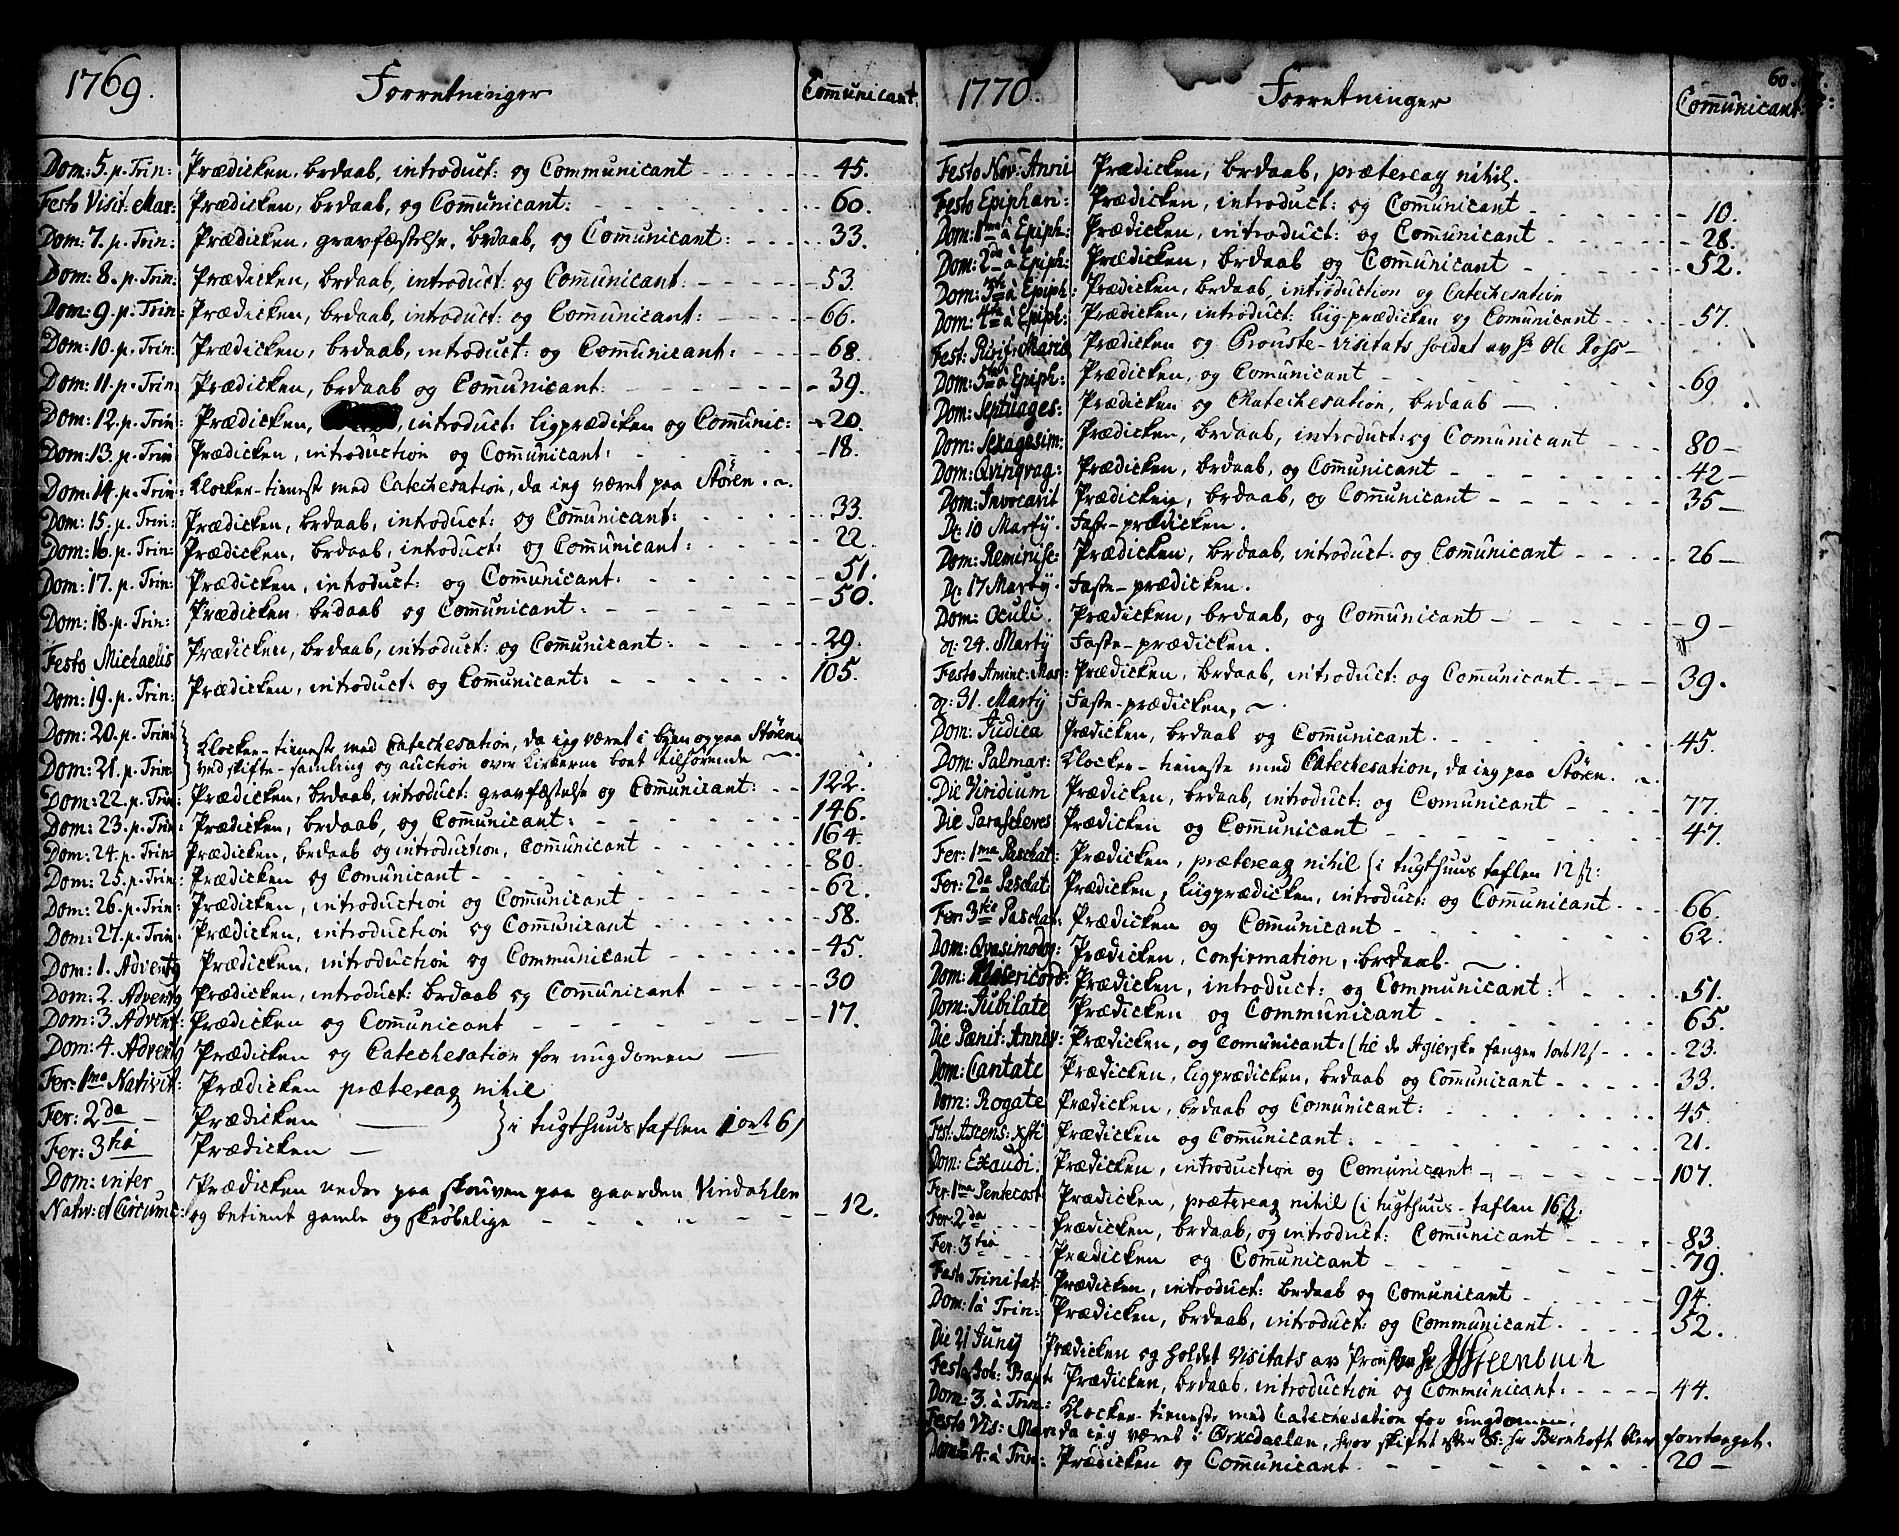 1769. Forretninger Com̄unicant
Dom: 5. p. Trin: Prædicken, brdaab, introduct: og Communicant - - - - 45.
Festo Visit: Mar: Prædicken, brdaab, og Com̄unicant: - - - - 60.
Dom: 7. p. Trin: Prædicken, gravfæstelse, brdaab, og Com̄unicant: - - - - 33.
Dom: 8. p. Trin: Prædicken, brdaab, introduct: og Com̄unicant: - - - - 53.
Dom: 9. p. Trin: Prædicken, brdaab, introduct: og Com̄unicant: - - - - 66.
Dom: 10. p. Trin: Prædicken, brdaab, introduct: og Com̄unicant: - - - - 68.
Dom: 11. p. Trin: Prædicken, brdaab og Com̄unicant: - - - - 39.
Dom: 12. p. Trin: Prædicken, introduct: ligprædiken og Com̄unic: - 20.
Dom: 13. p. Trin: Prædicken, introduction og Com̄unicant: - - - - 18.
Dom: 14. p. Trin: klocker-tieneste med Catechesation, da ieg været paa Stören.
Dom: 15. p. Trin: Prædicken, brdaab, introduct: og Com̄unicant: - - - - 33.
Dom: 16. p. Trin: Prædicken, brdaab, introduct: og Com̄unicant: - - - - 22.
Dom: 17. p. Trin: Prædicken, introduct: og Com̄unicant: - - - - 51.
Dom: 18. p. Trin: Prædicken, brdaab og Com̄unicant: - - - - 50.
Festo Michaelis Prædicken, brdaab, introduct: og Com̄unicant: - - - - 29.
Dom: 19. p. Trin: Prædicken, introduct: og Com̄unicant: - - - - 105.
Dom: 20. p. Trin: klocker-tieneste med Catechesation, da ieg været i byen og paa Stören
Dom: 21. p. Trin: ved skifte-samling og auction over kirkerne boet tilhörende
Dom: 22. p. Trin: Prædicken, brdaab, introduct: gravfæstelse og Com̄unicant: - - 122.
Dom: 23. p. Trin: Prædicken, brdaab, og Com̄unicant: - - - - 146.
Dom: 24. p. Trin: Prædicken, brdaab og introduction, Com̄unicant - - - - 164.
Dom: 25. p. Trin: Prædicken og Com̄unicant - - - - 80.
Dom: 26. p. Trin: Prædicken, introduction og Com̄unicant - - - - 62.
Dom: 27. p. Trin: Prædicken, introduction og Com̄unicant - - - - 58.
Dom: 1. Adventg Prædicken, introduction og Communicant - - - - 45.
Dom: 2. Adventg Prædicken, introduct: brdaab og Com̄unicant - - - - 30
Dom: 3. Advent: Prædicken og Com̄unicant - - - - 17.
Dom: 4. Adventg Prædicken og Catechesation for ungdomen —
Fer: 1ma Nativit: Prædicken prætereaq nihil
Fer: 2da — Prædicken —
Fer: 3tia Prædicken — } i tugthuus taflen 1 ort 6 ſ
Dom: inter Prædicken neder paa skouven paa gaarden Vindahlen
Nativ: et Circumc: og betient gamle og skröbelige - - - - 12.
60.
1770. Forretninger Com̄unicant:
Festo Nov: Anni Prædicken, brdaab, prætereaq nihil.
Festo Epiphan: Prædicken, introduct: og Com̄unicant - - - - 10.
Dom: 1ma à Epiph: Prædicken, introduct: og Com̄unicant - - - - 28.
Dom: 2da à Epiph: Prædicken, brdaab og Com̄unicant - - - - 52.
Dom: 3tia à Epiph: Prædicken, brdaab, introduction og Catechesation
Dom: 4ta à Epiph: Prædicken, introduct: liig-prædicken og Com̄unicant - - - - 57.
Fest: Purif: Mariæ Prædicken og Prouste-visitats holdet av Hr Ole Ross —
Dom: 5ta à Epiph: Prædicken, og Com̄unicant - - - - 69
Dom: Septuages: Prædicken og Katechesation, brdaab — .
Dom: Sexagesim: Prædicken, brdaab, introduct: og Comunicant - - 80 —
Dom: Qvinqvag: Prædicken, brdaab, og Com̄unicant - - - - 42 —
Dom: Invocavit Prædicken, brdaab, og Com̄unicant - - - - 35 —
D: 10 Martÿ. Faste-prædicken.
Dom: Reminisc: Prædicken, brdaab, introduct: og Com̄unicant - - - - 26 —
D: 17 Martÿ. Faste-prædicken.
Dom: Oculi. Prædicken, brdaab, og Com̄unicant - - - - 9 —
D: 24. Martÿ Faste-prædicken.
Festo Anunc: Mar: Prædicken, brdaab, introduct: og Com̄unicant - - - - 39.
D: 31. Martÿ Faste-prædicken.
Dom: Judica Prædicken, brdaab og Com̄unicant - - - - 45.
Dom: Palmar: klocker-tieneste med Catechesation, da ieg paa Stören.
Die Viridium Prædicken, brdaab, introduct: og Com̄unicant - - - - 77.
Die Parasceves Prædicken og Com̄unicant - - - - 47.
Fer: 1ma Paschat: Prædicken, prætereaq nihil (i tugthuus taflen 12 ß:
Fer: 2da Paschat: Prædicken, liigprædicken, introduct: og Com̄unicant - - - 66.
Fer: 3tia Paschat: Prædicken og Com̄unicant - - - - 62.
Dom: Qvasimodog: Prædicken, confirmation, brdaab.
Dom: Misericord: Prædicken, introduct: og Communicant: - - - - 51.
Dom: Jubilate Prædicken og Communicant - - - - 65.
Die Pænit: Anniv: Prædicken, og Com̄unicant. (til de Agierske fanger 1 ort 12 ſ - - - 23.
Dom: Cantate Prædicken, ligprædicken, brdaab og Com̄unicant - - - - 33.
Dom: Rogate Prædicken, brdaab og Com̄unicant: - - - - 45.
Fest: Ascens: Xsti Prædicken og Com̄unicant: - - - - 21.
Dom: Exaudi. Prædicken, introduction og Com̄unicant - - - - 107.
Fer: 1ma Pentecost: Prædicken, prætereaq nihil (i tugthuus-taflen 16 ß:
Fer: 2da - - - Prædicken, brdaab, og introduct: Com̄unicant - - - - 83.
Fer: 3tia - - - Prædicken og Com̄unicant - - - - 79.
Festo Trinitat: Prædicken, introduct: brdaab og Com̄unicant - - - - 94.
Dom: 1 à Trin: Prædicken, brdaab, introduct: og Communicant - - - - 52.
Die 21 Junÿ Prædicken og holdet Visitats av Prousten Hr Steenbuch
Festo Joh: Bapt: Prædicken, brdaab, introduction og Communicant: - - - - 44.
Dom: 3. à Trin: klocker-tieneste med Catechesation for ungdomen,
Festo Vis: Mar: da ieg været i Orkedaelen, hvor skiftet efter S: hr Bernhoft blev foretaget.
Dom: 4. à Trin: Prædicken og Com̄unicant - - - - 20 —